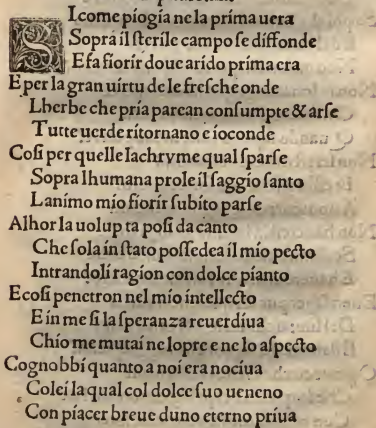 SIcome piogia ne la prima uera
Sopra il sterile campo se diffonde
E fa fiorir doue arido prima era
E per la gran uirtu de le fresche onde
Lherbe che pria parean consumpte & arse
Tutte uerde ritornano e ioconde
Cosi per quelle lachryme qual sparse
Sopra lhumana prole il saggio santo
Lanimo mio fiorir subito parse
Alhor la uolup ta posi da canto
Che sola in stato possedea il mio pecto
Intrandoli ragion con dolce pianto
E cosi penetron nel mio intellecto
E in me si la speranza reuerdiua
Chio me mutai ne lopre e ne lo aspecto
Cognobbi quanto a noi era nociua
Colei la qual col dolce suo ueneno
Con piacer breue duno eterno priua